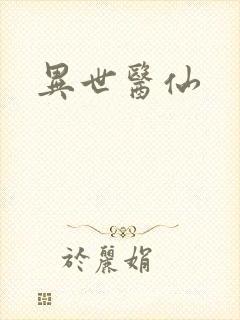 異世醫仙
於麗娟